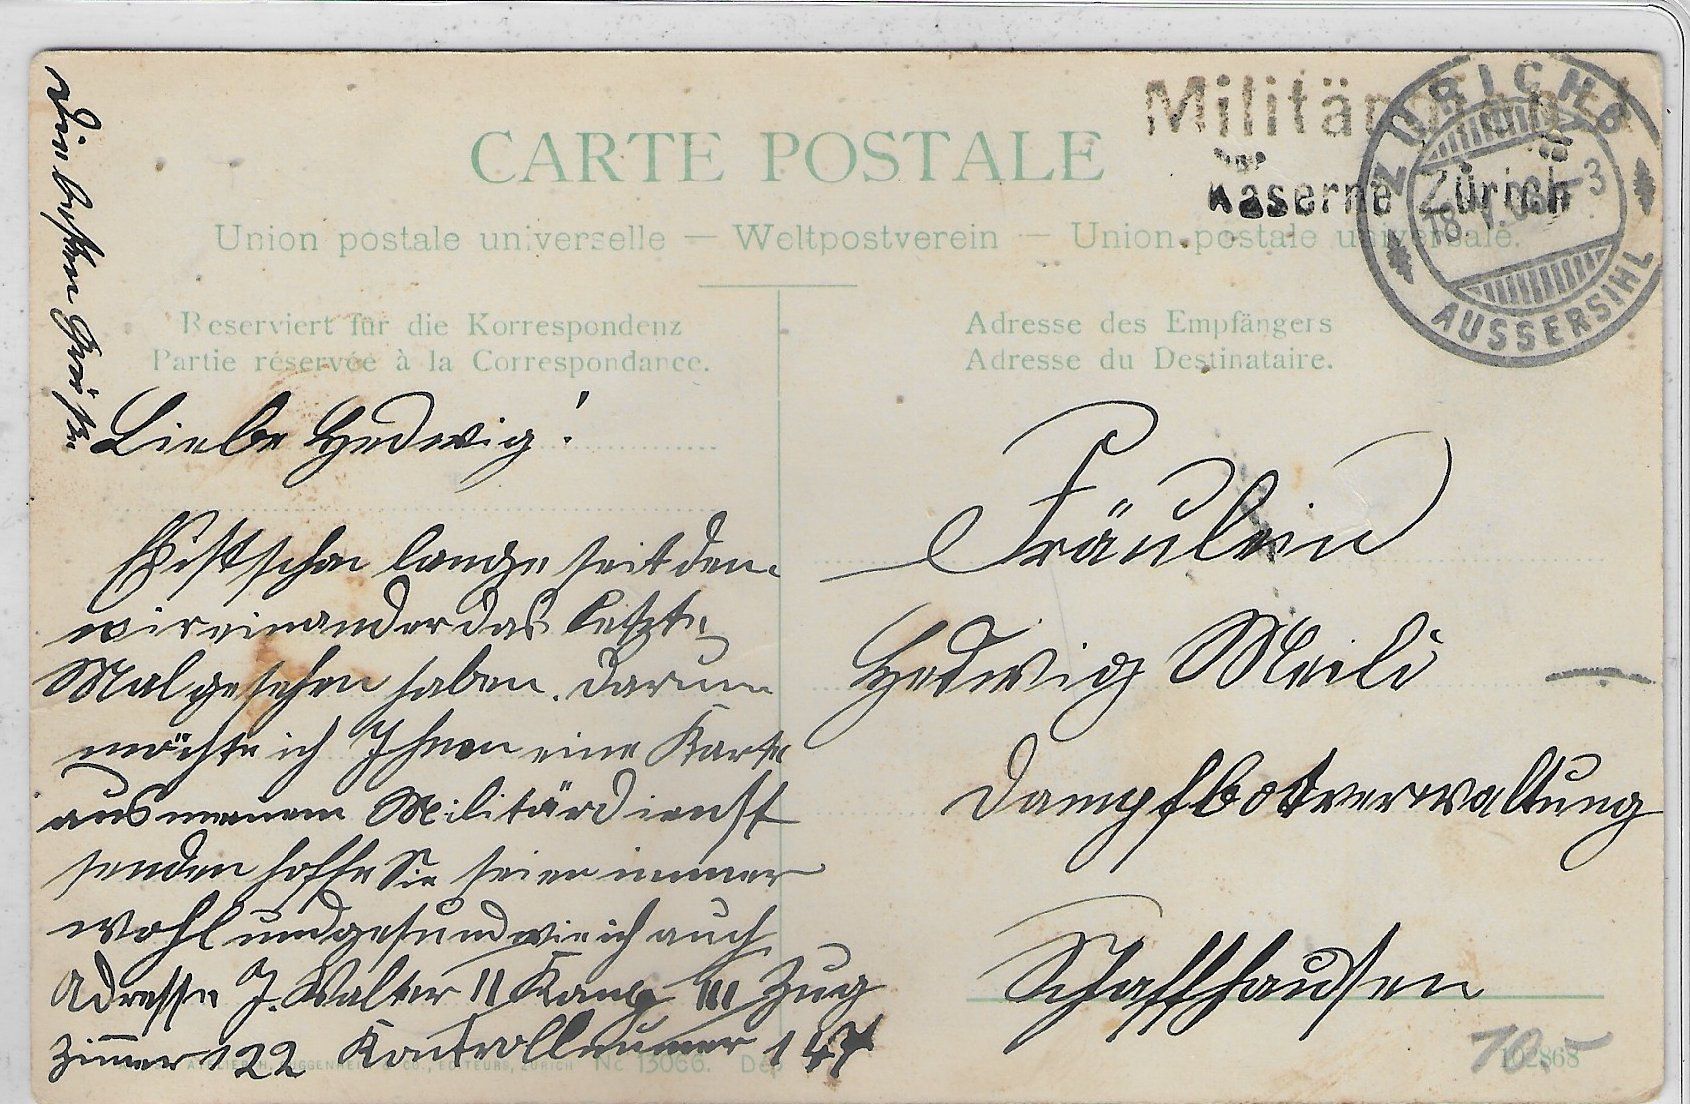 CARTE POSTALE
Union postale universelle — Weltpostverein — Union postale universelle.
Militär
Kaserne Zürich
ZÜRICH 9
18. V. 08 - 3
AUSSERSIHL
Reserviert für die Korrespondenz
Partie réservée à la Correspondance.
Adresse des Empfängers
Adresse du Destinataire.
Die besten Grüße
Liebe Hedwig!
Ist schon lange seit dem
wir einander das letzte
Mal gesehen haben. Darum
möchte ich Ihnen eine Karte
aus meinem Militärdienst
senden hoffe Sie seien immer
wohl und gesund wie ich auch
Adresse J. Walter II Komp III Zug
Zimmer 122 Kontrollnummer 147
Fräulein
Hedwig Meili
Dampfbotverwaltung
Schaffhausen
GUGGENHEIM & CO., EDITEURS, ZÜRICH No 13066. Dép
102868
70.-